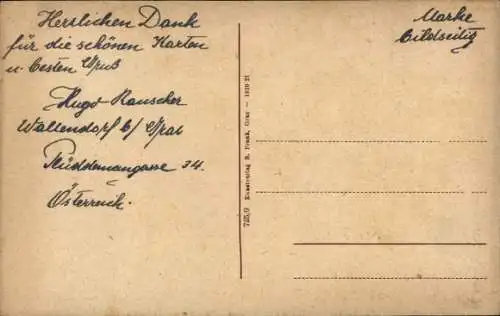 Herzlichen Dank
für die schönen Karten
u. besten Gruß
Hugo Rauscher
Waltendorf b/ Graz
Rüdemanngasse 34.
Österreich.
Marke
bildseitig
725/9 Kunstverlag R. Frank, Graz — 1920 21